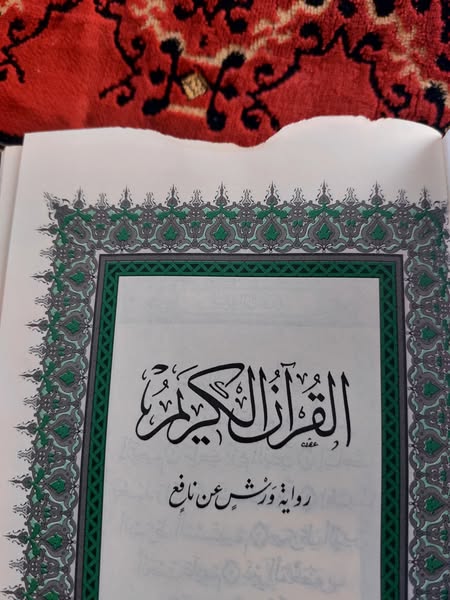 القُرآنُ الكَرِيمُ
رواية وَرْشٍ عن نافِعٍ